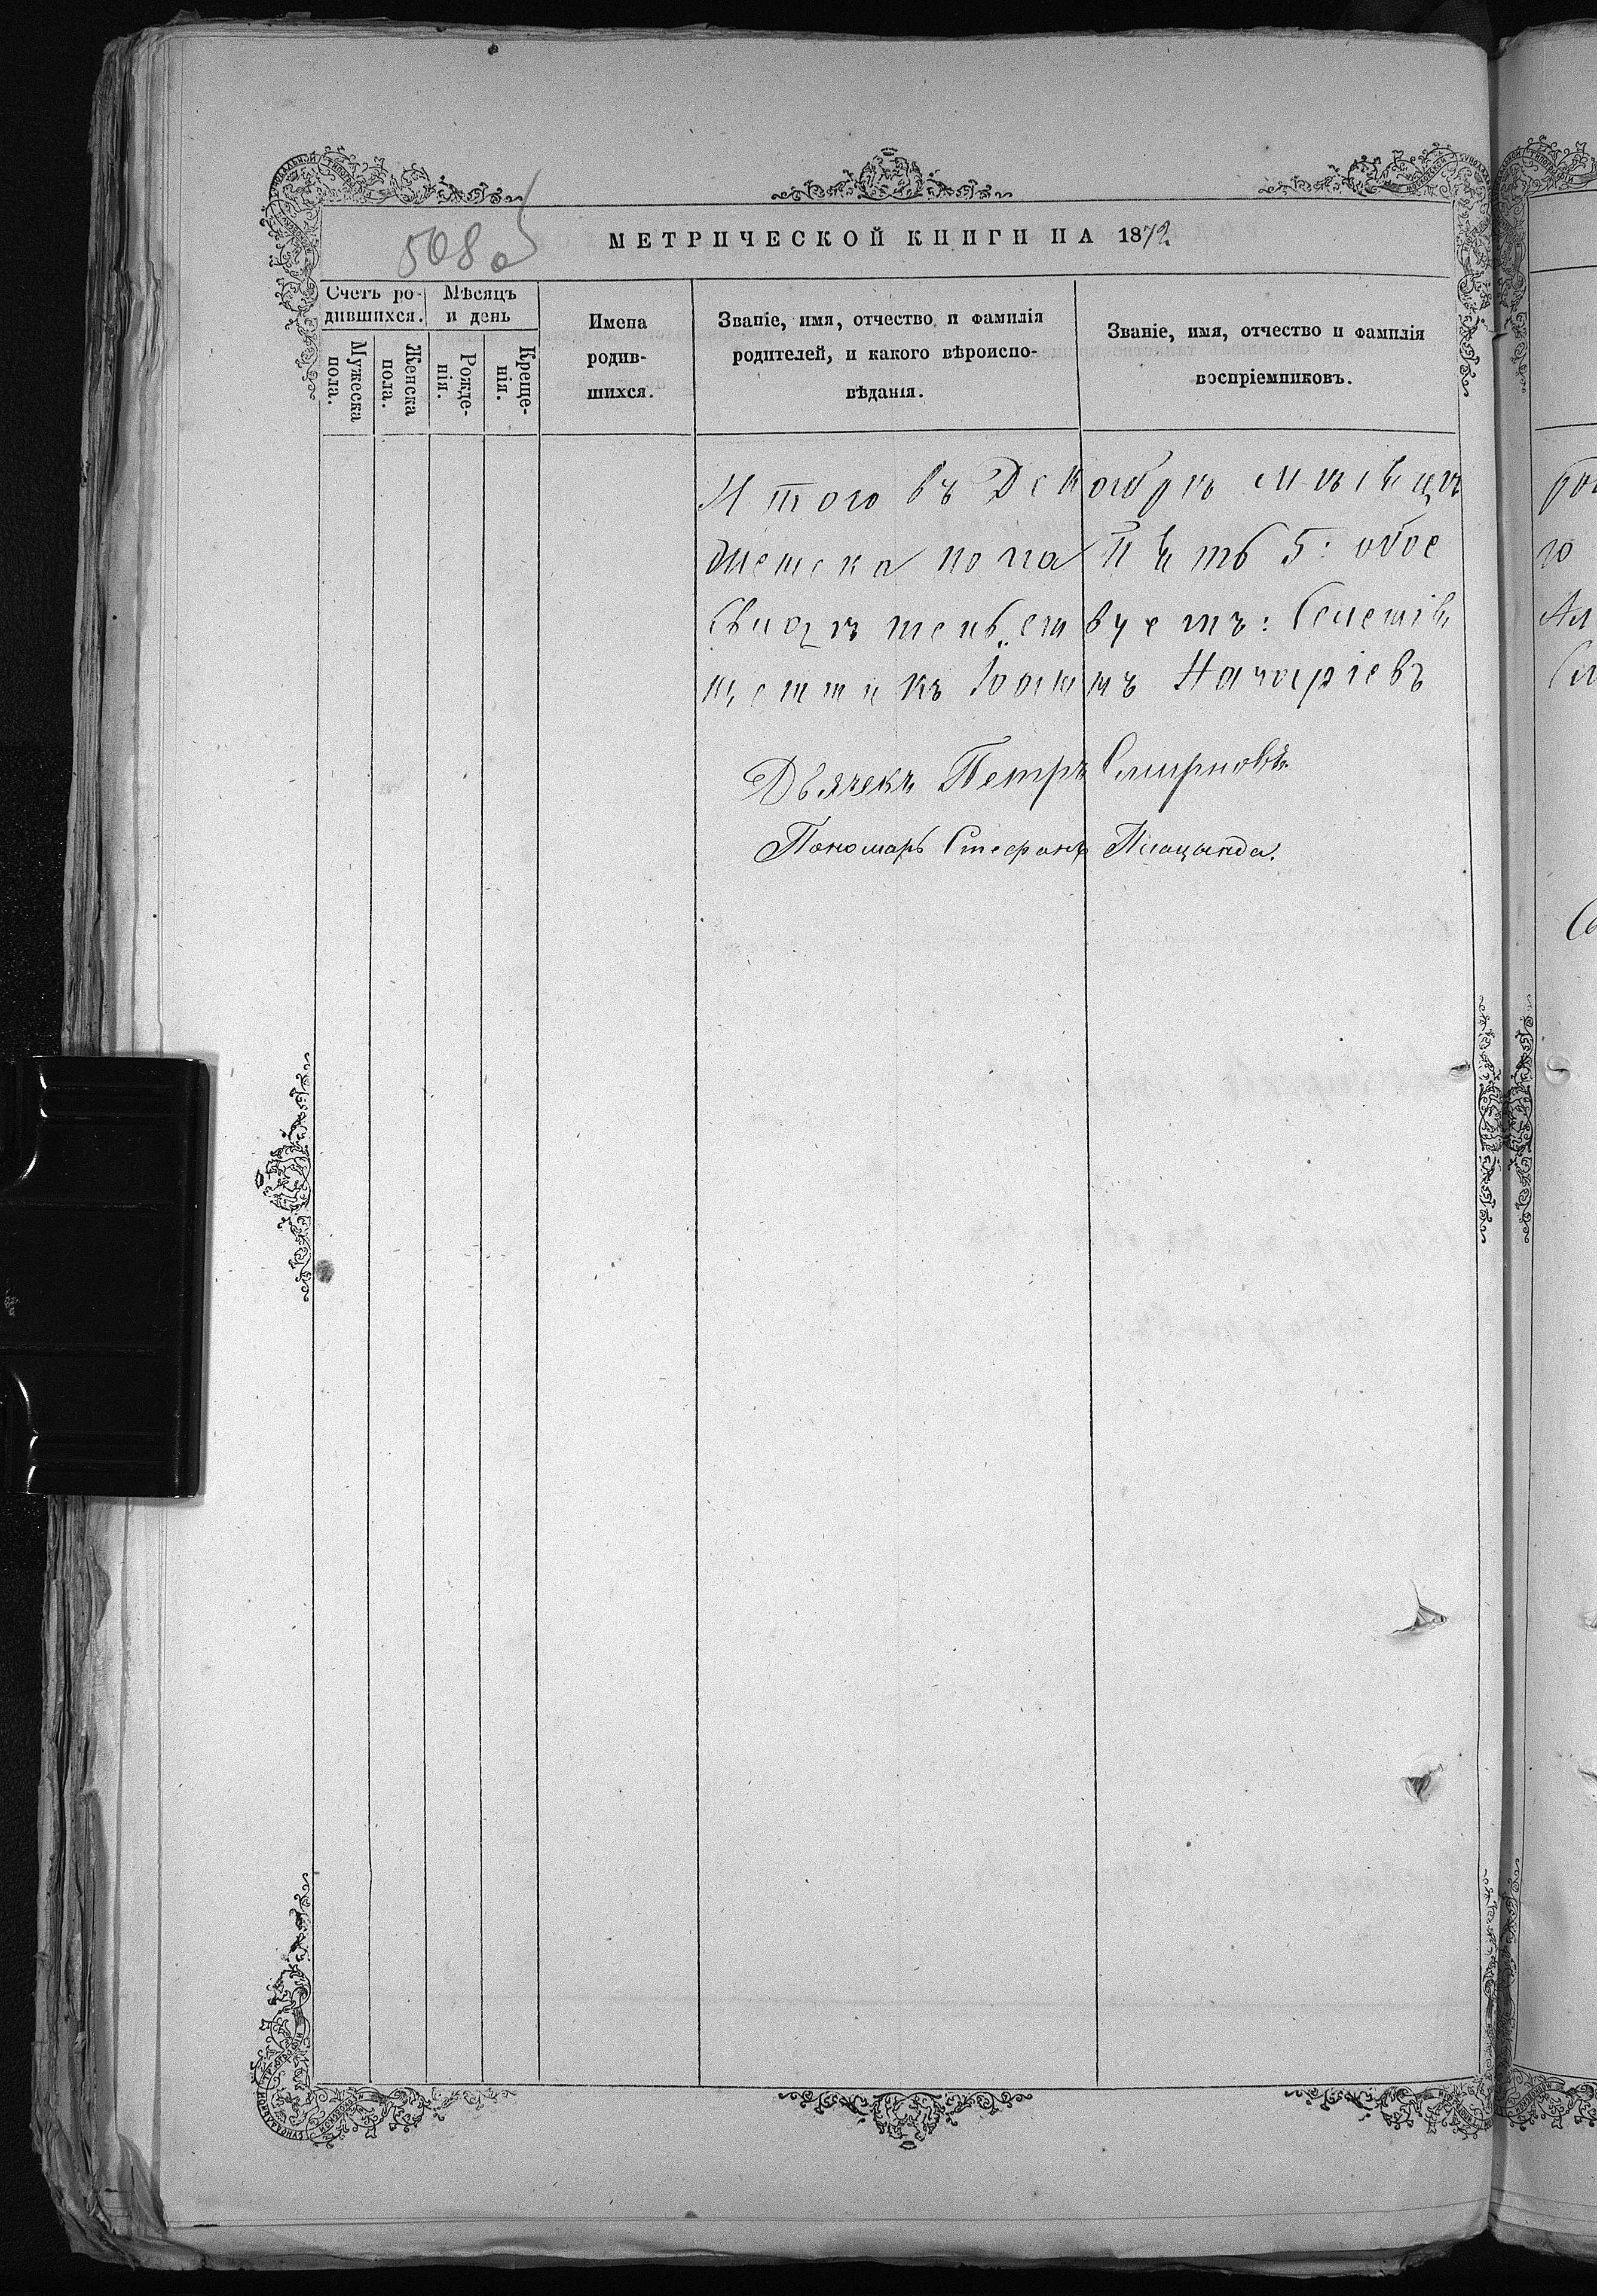 508 об
МЕТРИЧЕСКОЙ КНИГИ НА 1872
Счетъ родившихся.
Мужеска пола.
Женска пола.
Мѣсяцъ и день
Рожденія.
Крещенія.
Имена
родив-
шихся.
Званіе, имя, отчество и фамилія
родителей, и какого вѣроиспо-
вѣданія.
Званіе, имя, отчество и фамилія
воспріемниковъ.
Итого въ Декабрѣ мѣсяцѣ
женска пола пять 5: обое
Свидѣтельствуетъ: Свящ
щенникъ Іоаннъ
Дьячекъ Петръ Смирновъ
Пономарь Стефанъ Плацында.